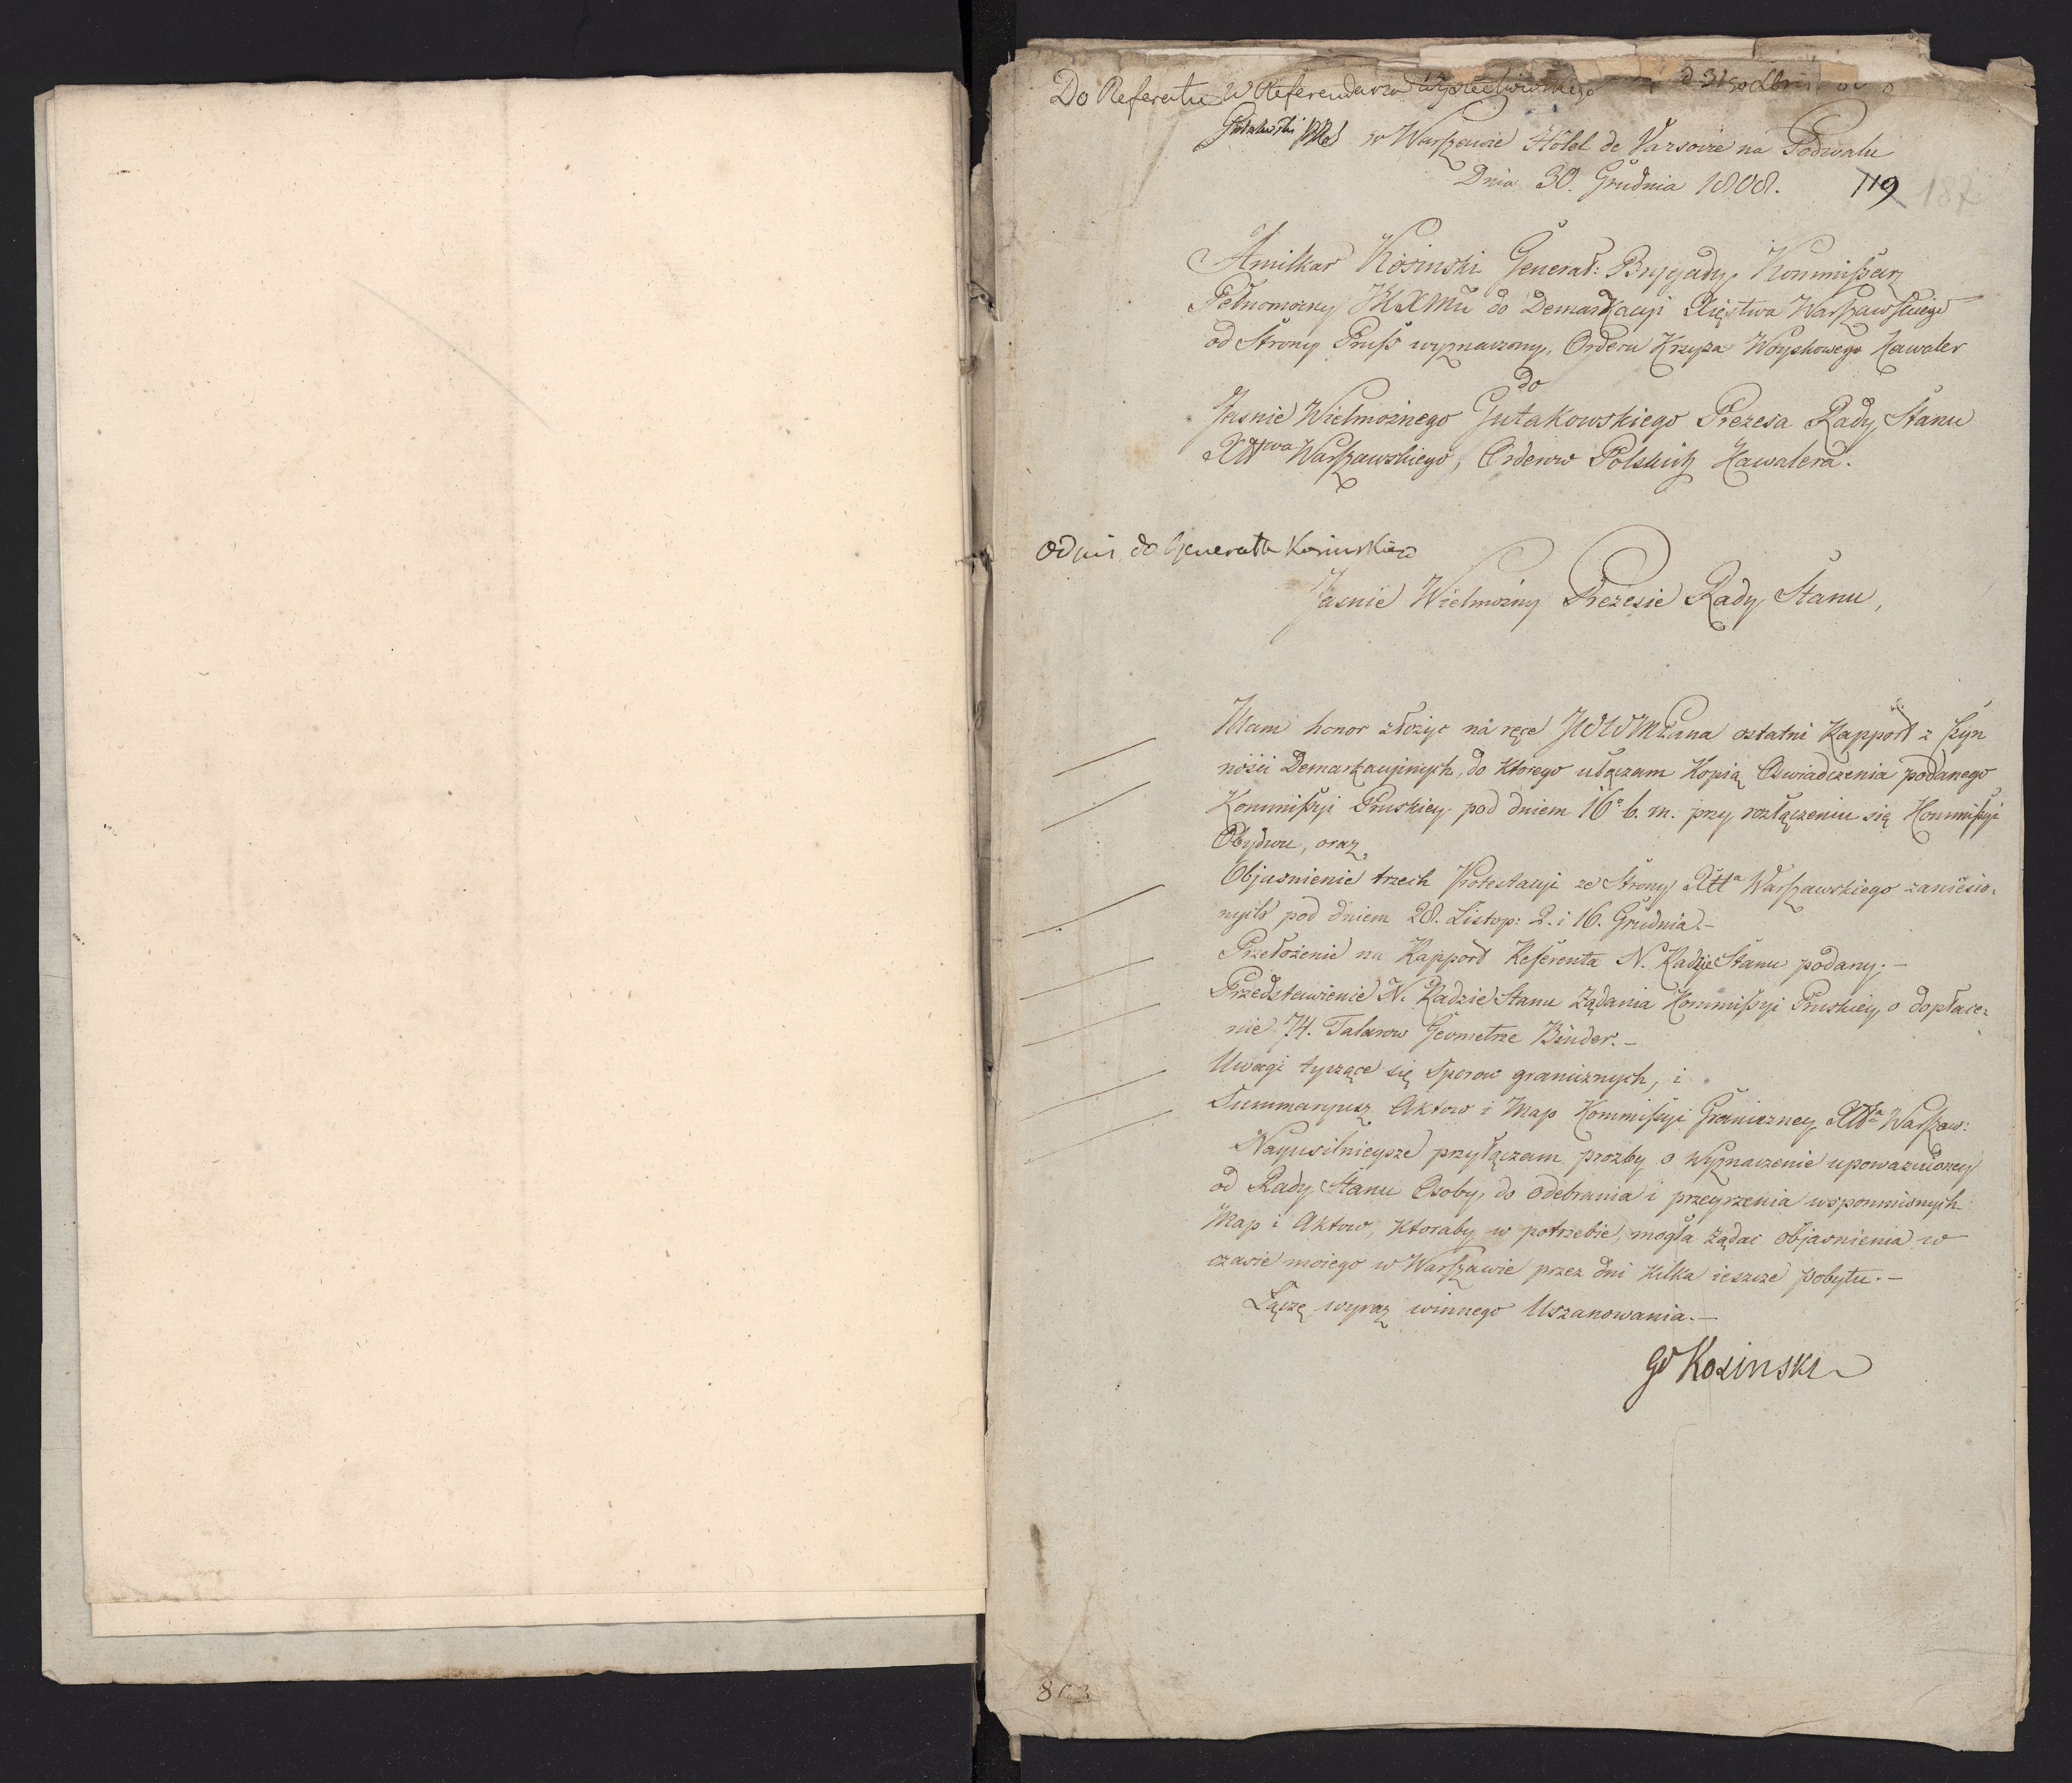 Do Referatu W Referendarza
d 31 
Gutakowski w Warszawie Hôtel de Varsovie na Podwalu
Dnia 30. Grudnia 1808. 119 187
Amilkar Kosinski Generał: Brygady, Kommissarz
Pełnomocny JKXMci do Demarkacyi Xięstwa Warszawskiego
od Strony Pruss wyznaczony, Orderu Krzyża Woyskowego Kawaler
do
Jasnie Wielmożnego Gutakowskiego Prezesa Rady Stanu
Xttwa Warszawskiego, Orderow Polskich Kawalera.
do Generała Kosinskiego
Jasnie Wielmożny Prezesie Rady Stanu,
Mam honor złożyc na ręce JWWMPana ostatni Rapport z Czyn
nosci Demarkacyinych, do ktorego ułączam Kopią Oswiadczenia podanego
Kommissyi Pruskiey pod dniem 16° b. m. przy rozłączeniu się Kommissyi
Obydwu, oraz
Objasnienie trzech Protestacyi ze Strony Xtta Warszawskiego zaniesio-
nych pod dniem 28. Listop: 2. i 16. Grudnia.-
Przełożenie na Rapport Referenta N. Radzie Stanu podany;-
Przedstawienie N. Radzie Stanu Żądania Kommissyi Pruskiey o dopłace-
nie 74. Talarow Geometrze Binder.-
Uwagi tyczące się Sporow granicznych, i
Summaryusz Aktow i Map Kommissyi Graniczney Xtta Warszaw:
Nayusilnieysze przyłączam prozby o Wyznaczenie upoważnioney
od Rady Stanu Osoby, do odebrania i przeyrzenia wspomnionych
Map i Aktow, ktoraby w potrzebie, mogła żądac objasnienia w
czasie moiego w Warszawie przez dni kilka ieszcze pobytu.-
Łączę wyraz winnego Uszanowania.-
Gł Kosinski